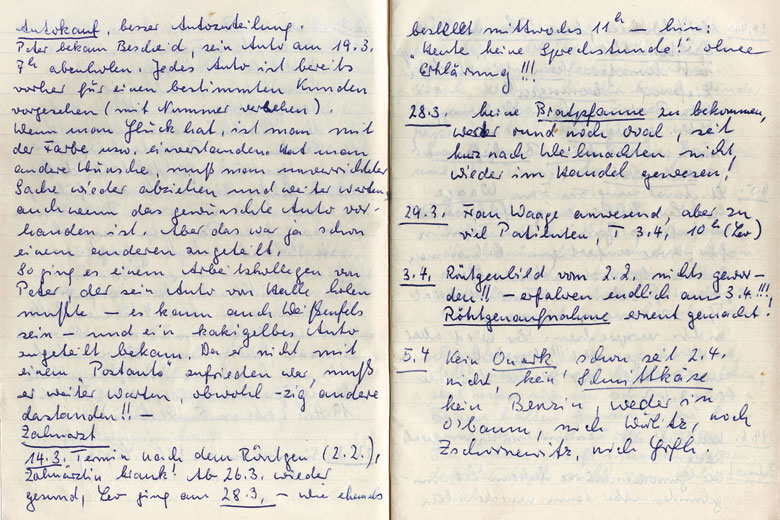 Autokauf, besser Autozuteilung.
Peter bekam Bescheid, sein Auto am 19.3.
7h abenholen. Jedes Auto ist bereits
vorher für einen bestimmten Kunden
vorgesehen (mit Nummer versehen).
Wenn man Glück hat, ist man mit
der Farbe usw. einverstanden. Hat man
andere Wünsche, muß man unverrichteter
Sache wieder abziehen und weiter warten,
auch wenn das gewünschte Auto vor-
handen ist. Aber das war ja schon
einem anderen zugeteilt.
So ging es einem Arbeitskollegen von
Peter, der sein Auto von Halle holen
mußte – es kann auch Weißenfels
sein – und ein kakigelbes Auto
zugeteilt bekam. Da er nicht mit
einem "Postauto" zufrieden war, muß
er weiter warten, obwohl -zig andere
dastanden!! –
Zahnarzt
14.3. Termin nach dem Röntgen (2.2.),
Zahnärztin krank! Ab 26.3. wieder
gesund, Leo ging am 28.3. – wie ehemals
bestellt mittwochs 11h – hin:
"Heute keine Sprechstunde!" ohne
Erklärung!!!
28.3. keine Bratpfanne zu bekommen,
weder rund noch oval, seit
kurz nach Weihnachten nicht
wieder im Handel gewesen!
29.3. Frau Waage anwesend, aber zu
viel Patienten, T 3.4. 10h (Leo)
3.4. Röntgenbild vom 2.2. nichts gewor-
den!! – erfahren endlich am 3.4.!!!
Röntgenaufnahme erneut gemacht!
5.4 Kein Quark schon seit 2.4.
nicht, kein Schnittkäse
kein Benzin, weder in
Oranbaum, noch Wörlitz, noch
Zschornewitz, noch Gräfh.